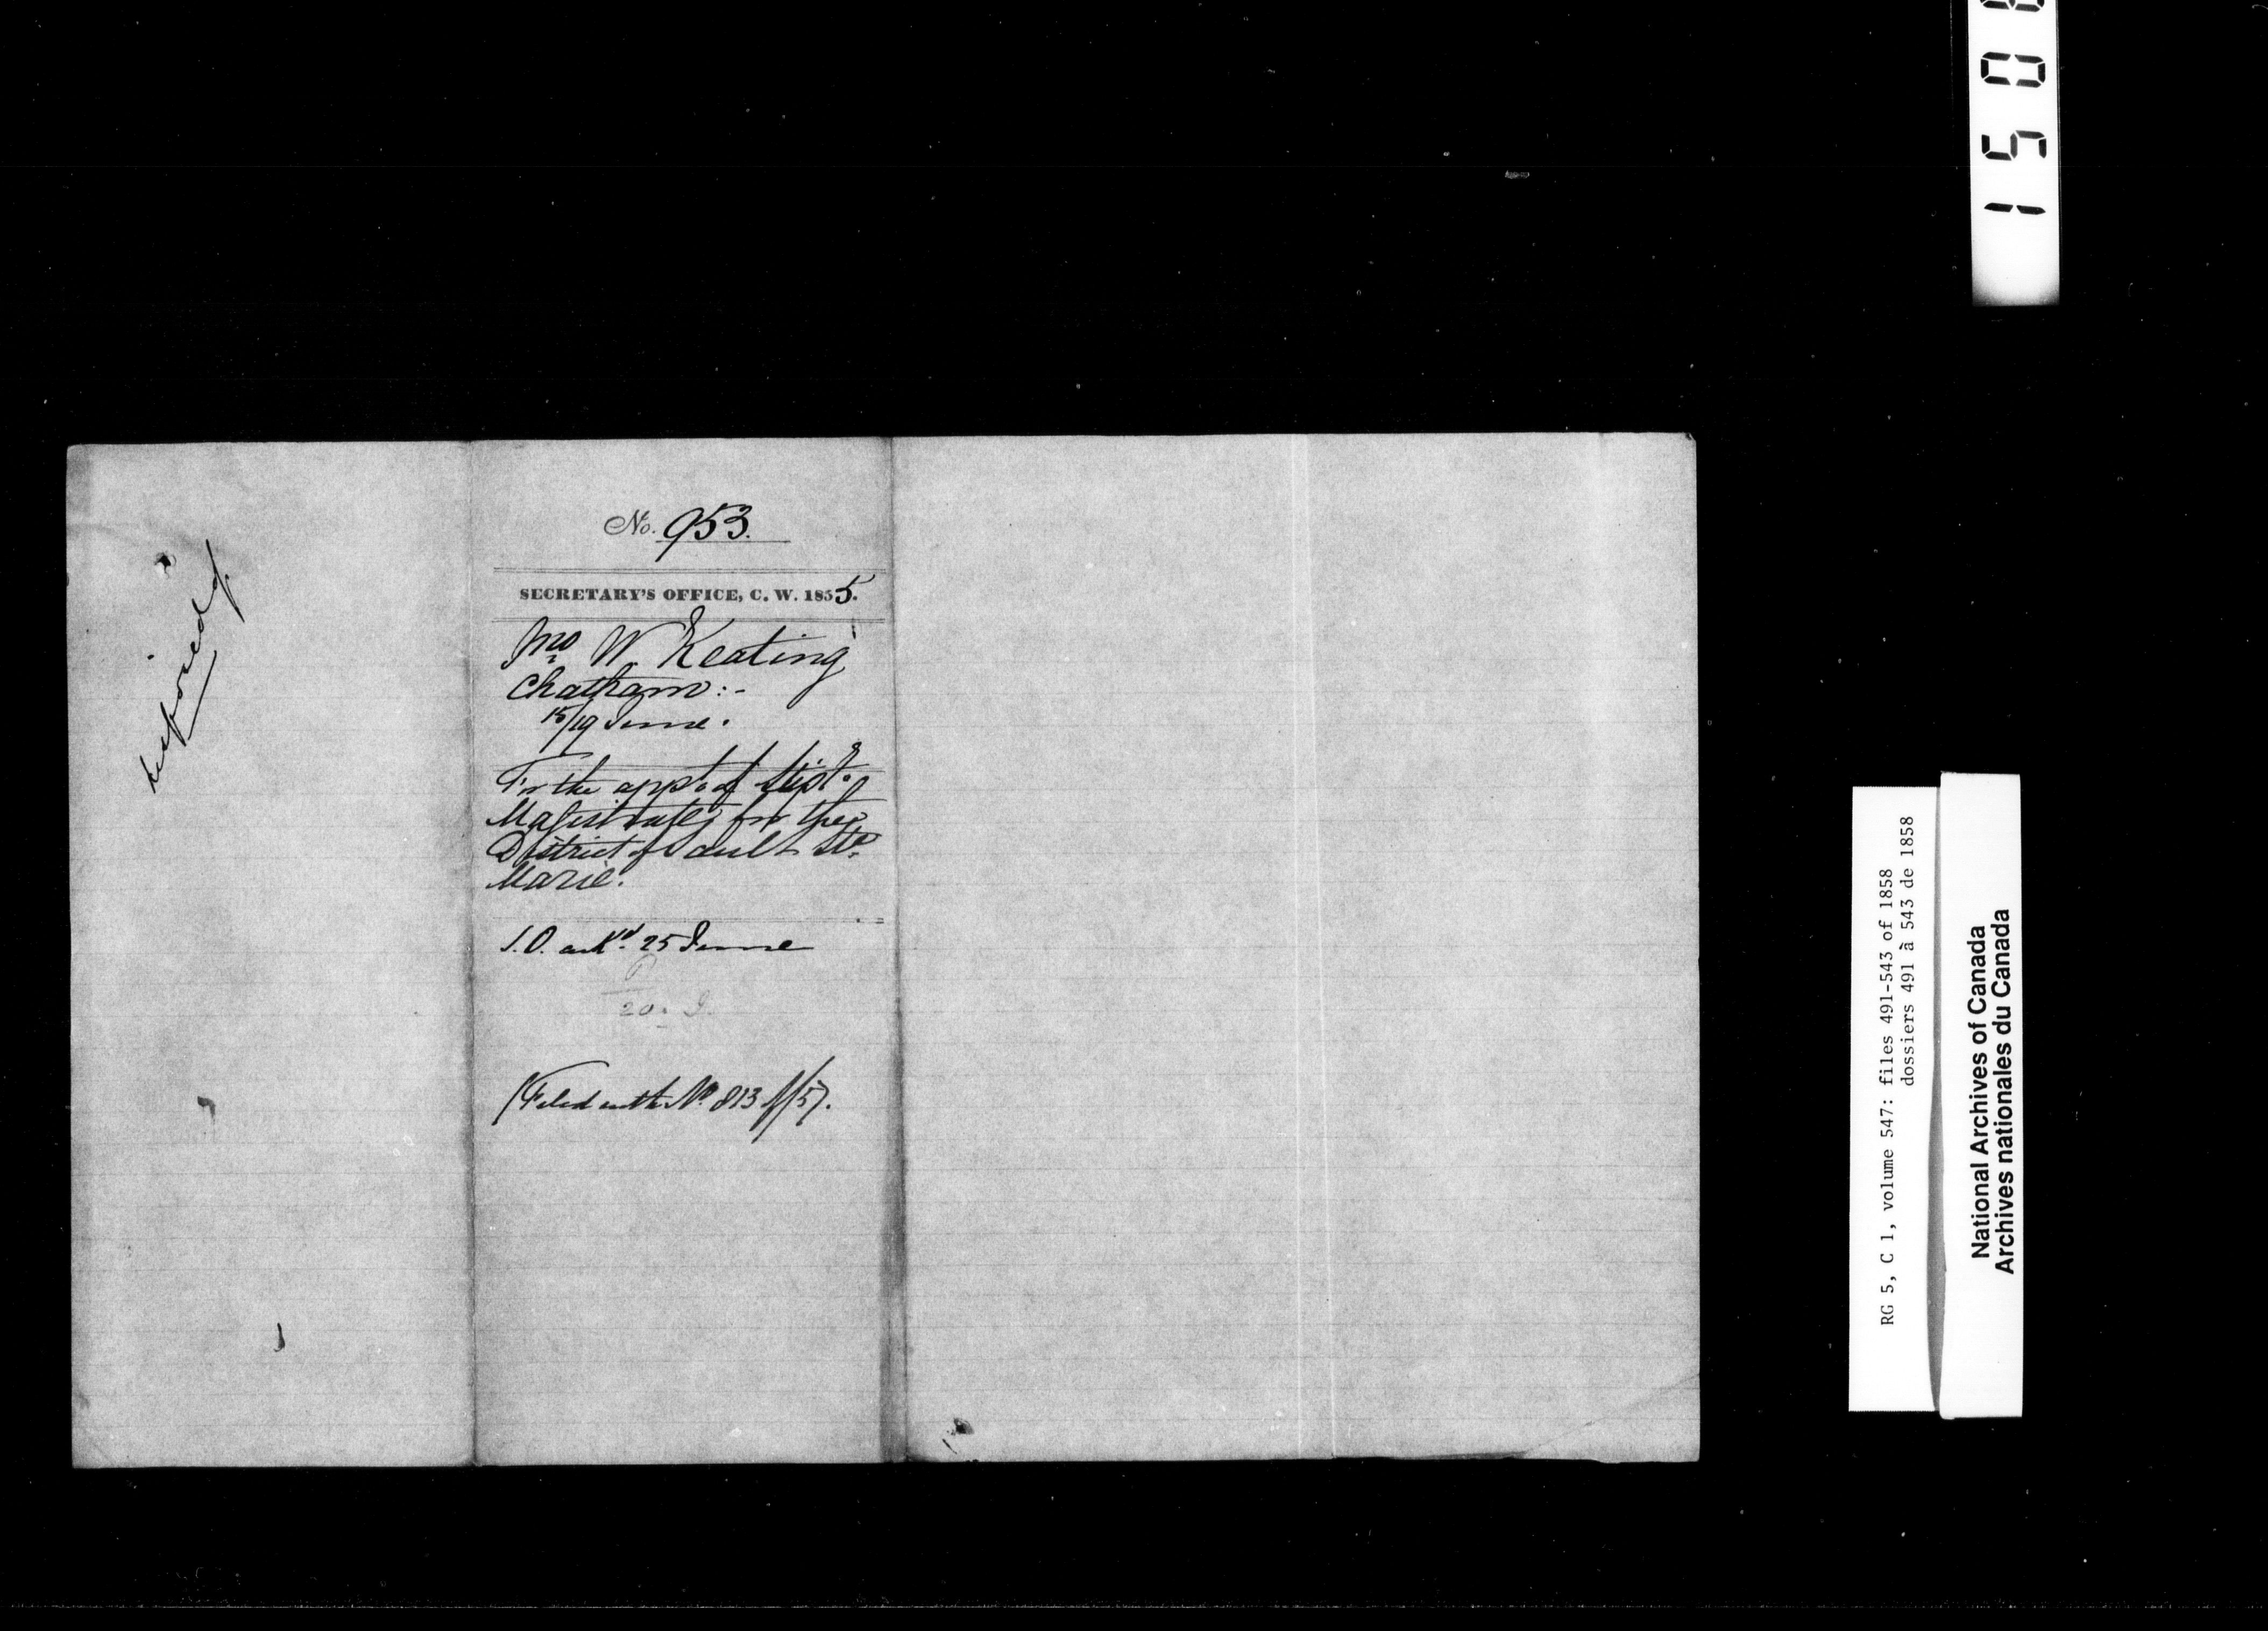 disposed of
No. 953.
SECRETARY'S OFFICE, C. W. 1855.
Jno W. Keating
Chatham:-
15/19 June.
For the appt. of Stipt.
Magistrate for the
District of Sault Ste
Marie.
ackd. 25 June
20. J.
(Filed with No. 813 of/57).
1508
RG 5, C 1, volume 547: files 491-543 of 1858
dossiers 491 à 543 de 1858
National Archives of Canada
Archives nationales du Canada